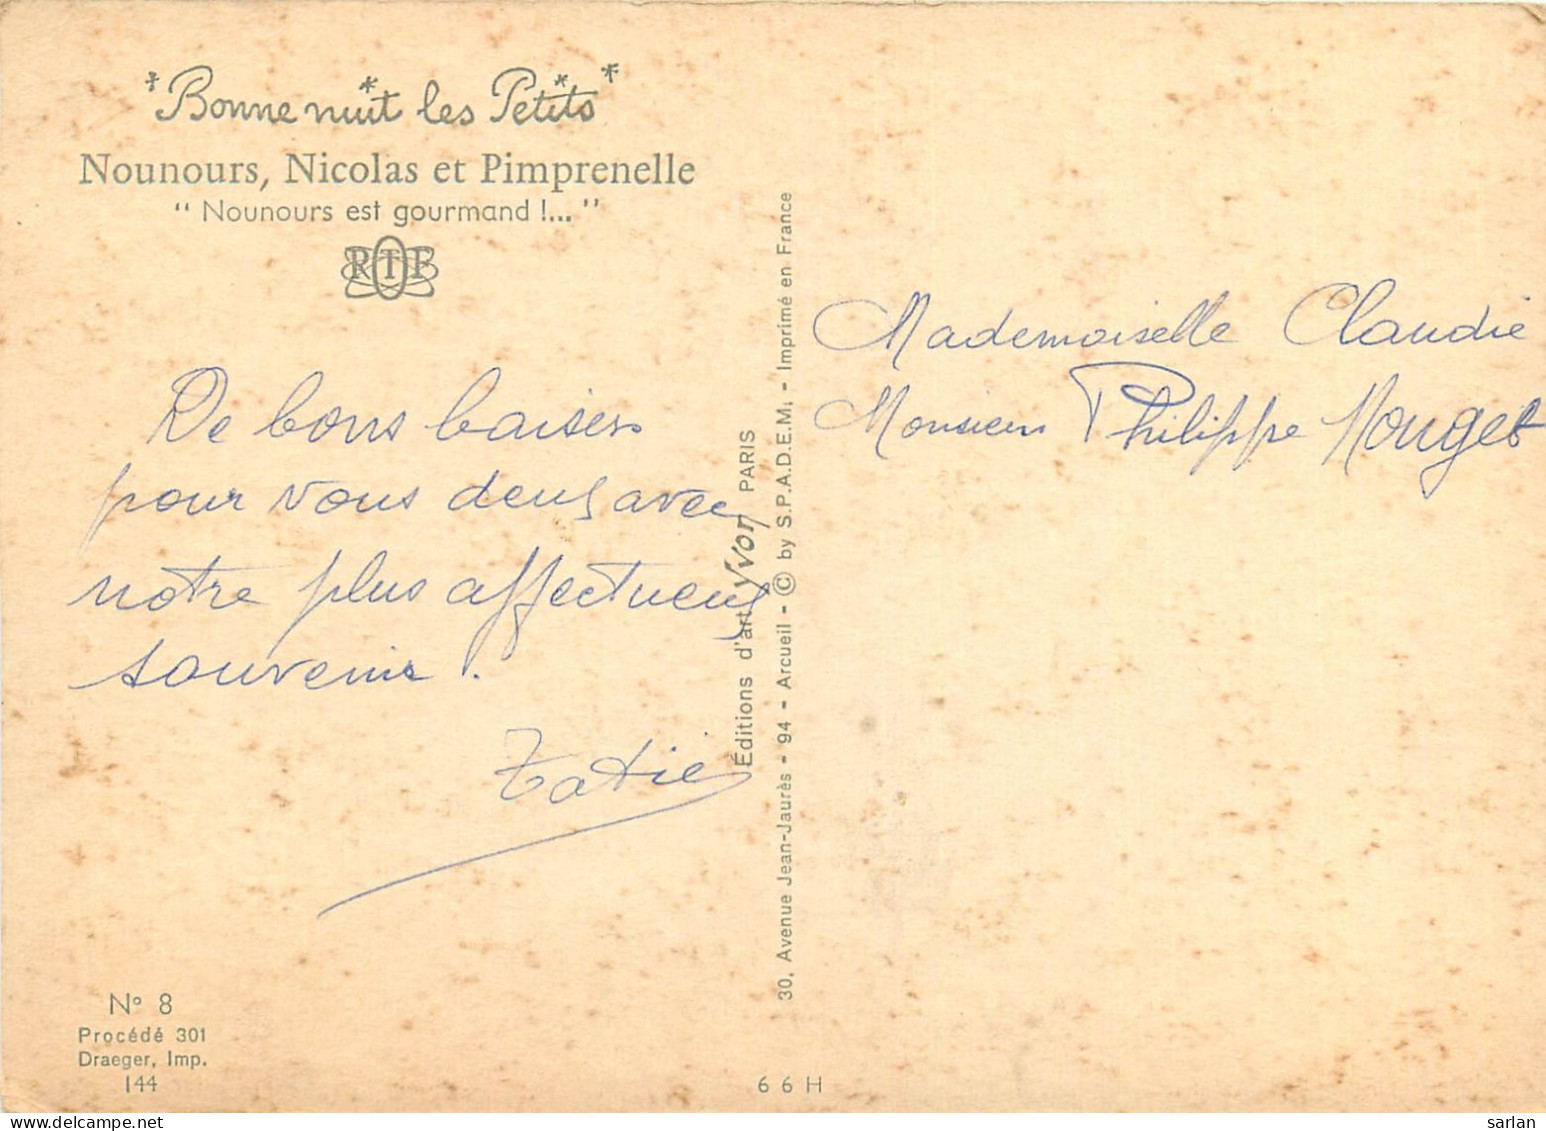 Bonne nuit les Petits
Nounours, Nicolas et Pimprenelle
" Nounours est gourmand !... "
RTF
De bons baisers
pour vous deux avec
notre plus affectueux
souvenir.
Tatie
N° 8
Procédé 301
Draeger, Imp.
144
Éditions d'art Yvon PARIS
30, Avenue Jean-Jaurès - 94 - Arcueil - © by S.P.A.D.E.M. - Imprimé en France
66H
Mademoiselle Claudie
Monsieur Philippe Mouget
sarlan